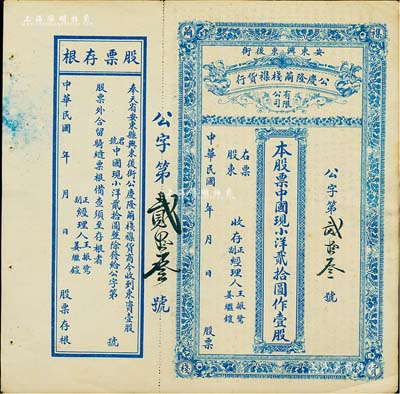 安東興東後街
公慶隆繭棧襍貨行
有限公司
公字第貳拾叁號
本股票中國現小洋貳拾圓作壹股
右票收存
股東
正副經理人王振鷺姜繼鎧
中華民國　年　月　日　股票
公字第貳拾叁號
股票存根
奉天省安東縣興東後街公慶隆繭棧襍貨商今收到東資壹股
君號中國現小洋貳拾圓整除發給公字第　號
股票外合留騎縫票根備查須至存根者
正副經理人王振鷺姜繼鎧
中華民國　年　月　日　股票存根